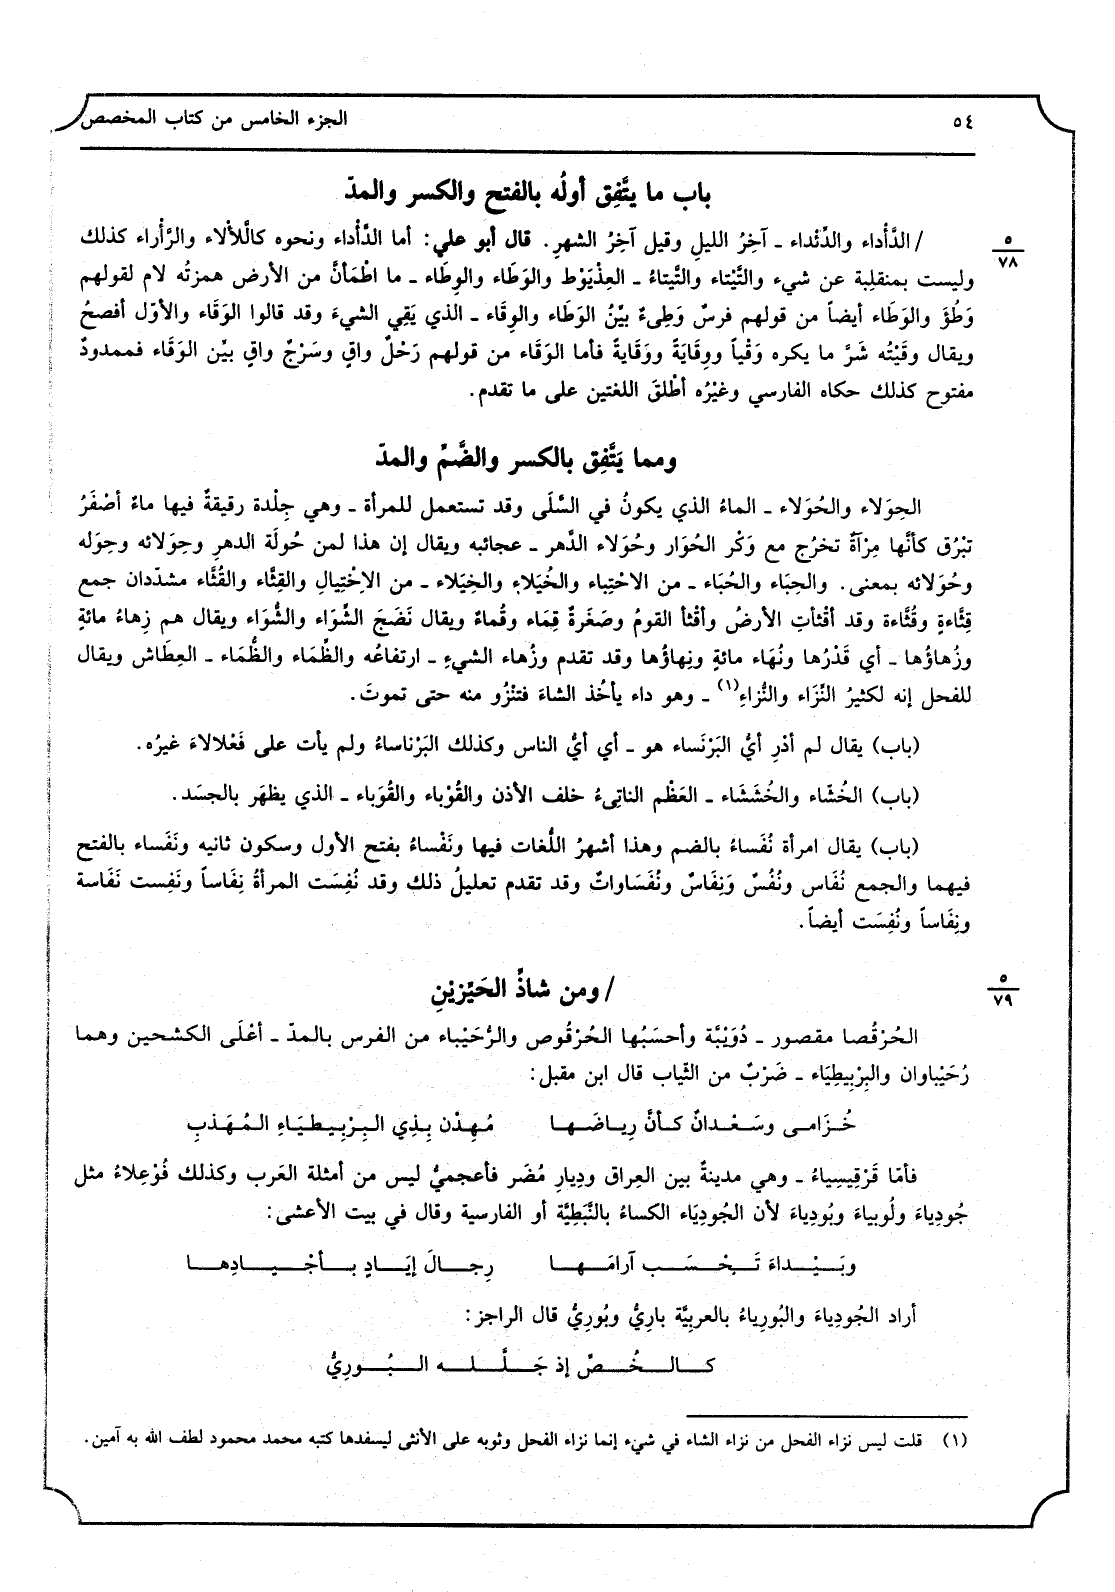 ٥٤ الجزء الخامس من كتاب المخصص
باب ما يتَّفِق أولُه بالفتح والكسر والمدّ
٥
٧٨
/ الدَّأْداء والدِّئْداء ـ آخِرُ الليلِ وقيل آخِرُ الشهرِ. قال أبو علي: أما الدَّأْداء ونحوه كاللَّأْلاء والرَّأْراء كذلك
وليست بمنقلِبة عن شيء والتَّيْتاء والتِّيتاءُ ـ العِذْيَوْط والوَطَاء والوِطَاء ـ ما اطْمَأنَّ من الأرض همزتُه لام لقولهم
وَطُؤَ والوَطَاء أيضاً من قولهم فرسٌ وَطِىءٌ بيِّنُ الوَطَاء والوِقَاء ـ الذي يَقِي الشيءَ وقد قالوا الوَقَاء والأوّل أفصحُ
ويقال وقَيْتُه شَرَّ ما يكره وَقْياً ووِقَايَةً ووَقايةً فأما الوَقَاء من قولهم رَحْلٌ واقٍ وسَرْجٌ واقٍ بيِّن الوَقَاء فممدودٌ
مفتوح كذلك حكاه الفارسي وغيْرُه أطْلقَ اللغتين على ما تقدم.
ومما يَتَّفِق بالكسر والضَّمِّ والمدّ
الحِوَلاء والحُوَلاء ـ الماءُ الذي يكونُ في السَّلَى وقد تستعمل للمرأة ـ وهي جِلْدة رقيقةٌ فيها ماءٌ أصْفَرُ
تبْرُق كأنَّها مِرْآةٌ تخرُج مع وَكْر الحُوَار وحُوَلاء الدَّهر ـ عجائبه ويقال إن هذا لمن حُولَة الدهرِ وحِوَلائه وحِوَله
وحُوَلائه بمعنى. والحِبَاء والحُبَاء ـ من الاحْتِباء والخُيَلاءِ والخِيَلاء ـ من الاخْتِيالِ والقِثَّاء والقُثَّاء مشدّدان جمع
قِثَّاءةٍ وقُثَّاءة وقد أقْثأتِ الأرضُ وأقْثأ القومُ وصَغَرةٌ قِمَاء وقُماءٌ ويقال نَضَجَ الشِّوَاء والشُّوَاء ويقال هم زِهاءُ مائةٍ
وزُهاؤُها ـ أي قَدْرُها ونُهَاء مائةٍ ونِهاؤُها وقد تقدم وزُهاء الشيءِ ـ ارتفاعُه والظِّمَاء والظُّمَاء ـ العِطَاش ويقال
للفحل إنه لكثيرُ النِّزَاء والنُّزاءِ(١) ـ وهو داء يأخُذ الشاءَ فتنْزُو منه حتى تموتَ.
(باب) يقال لم أدْرِ أيُّ البَرْنَساء هو ـ أي أيُّ الناس وكذلك البَرْناساءُ ولم يأت على فَعْلالاءَ غيرُه.
(باب) الخُشّاء والخُشَشَاء ـ العَظْم الناتِىءُ خلف الأذن والقُوْباء والقُوَباء ـ الذي يظهَر بالجسَد.
(باب) يقال امرأة نُفَساءُ بالضم وهذا أشهرُ اللُّغات فيها ونَفْساءُ بفتح الأول وسكون ثانيه ونَفَساء بالفتح
فيهما والجمع نُفَاس ونُفُسٌ وَنِفَاسٌ ونُفَسَاواتٌ وقد تقدم تعليلُ ذلك وقد نُفِسَت المرأةُ نِفَاساً ونَفِست نَفَاسة
ونِفَاساً ونُفِسَت أيضاً.
٥
٧٩
/ ومن شاذِّ الحَيِّزيْنِ
الحُرْقُصا مقصور ـ دُوَيْبَّة وأحسَبُها الحُرْقُوص والرُّحَيْباء من الفرس بالمدّ ـ أعْلَى الكشحين وهما
رُحَيْباوان والبِرْبِيطِيَاء ـ ضَرْبٌ من الثّياب قال ابن مقبل:
خُزَامى وسَعْدانٌ كأنَّ رِياضَها مُهِدْن بِذِي البِرْبِيطِيَاءِ المُهَذبِ
فأمّا قَرْقِيسِياءُ ـ وهي مدينةٌ بين العِراق ودِيارِ مُضَر فأعجميٌّ ليس من أمثلة العَرب وكذلك فُوْعِلاءُ مثل
جُودِياءَ ولُوبياءَ وبُودِياءَ لأن الجُودِيَاء الكساءُ بالنَّبَطِيَّة أو الفارسية وقال في بيت الأعشى:
وبَيْداءَ تَحْسَب آرامَها رِجالَ إيَادٍ بأجْيادِها
أراد الجُودِياءَ والبُورِياءُ بالعربيَّة بارِيٌّ وبُورِيٌّ قال الراجز:
كالخُصِّ إذ جَلَّله البُورِيُّ
(١) قلت ليس نزاء الفحل من نزاء الشاء في شيء إنما نزاء الفحل وثوبه على الأنثى ليسفدها كتبه محمد محمود لطف الله به آمين.